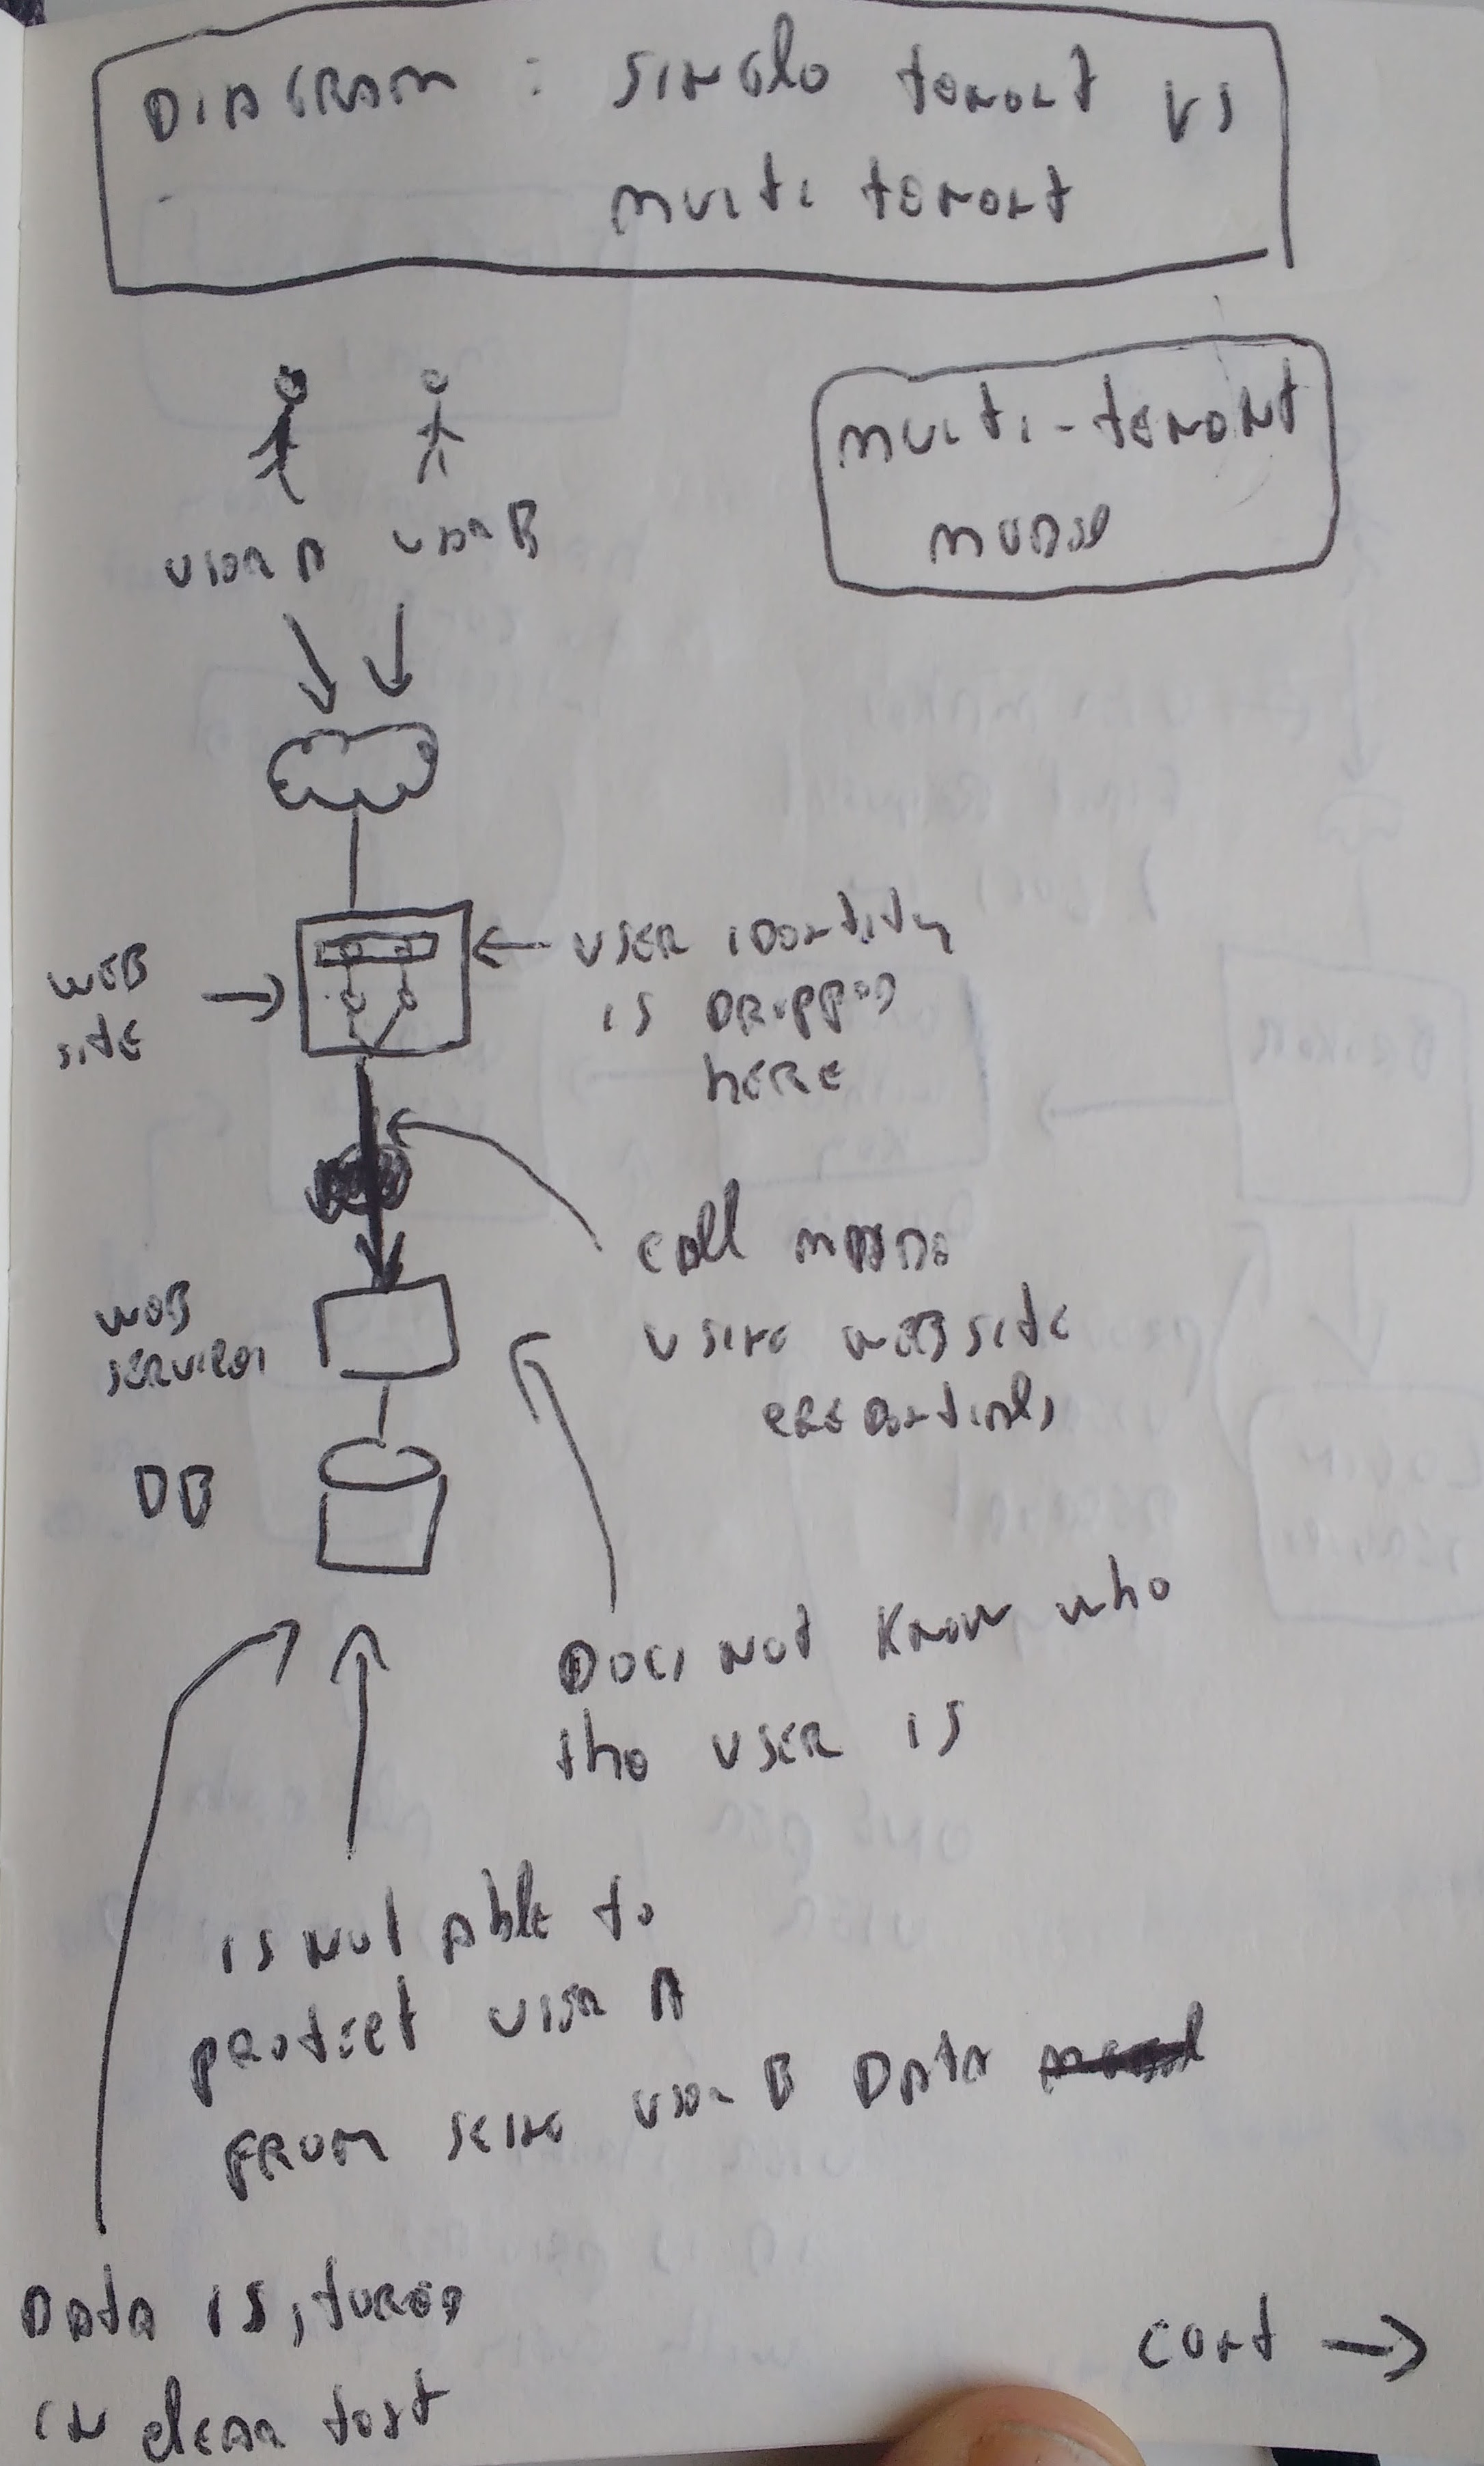 DIAGRAM : SINGle tenant vs
multi tenant
multi-tenant
model
user A user B
WEB
sitE
USER identity
is DROPPED
hERE
call made
using website
credentials
WEB
SERVICES
DB
Does not know who
the USER is
is not able to
protect user A
FROM seing user B Data
Data is stored
in clear text
cont →